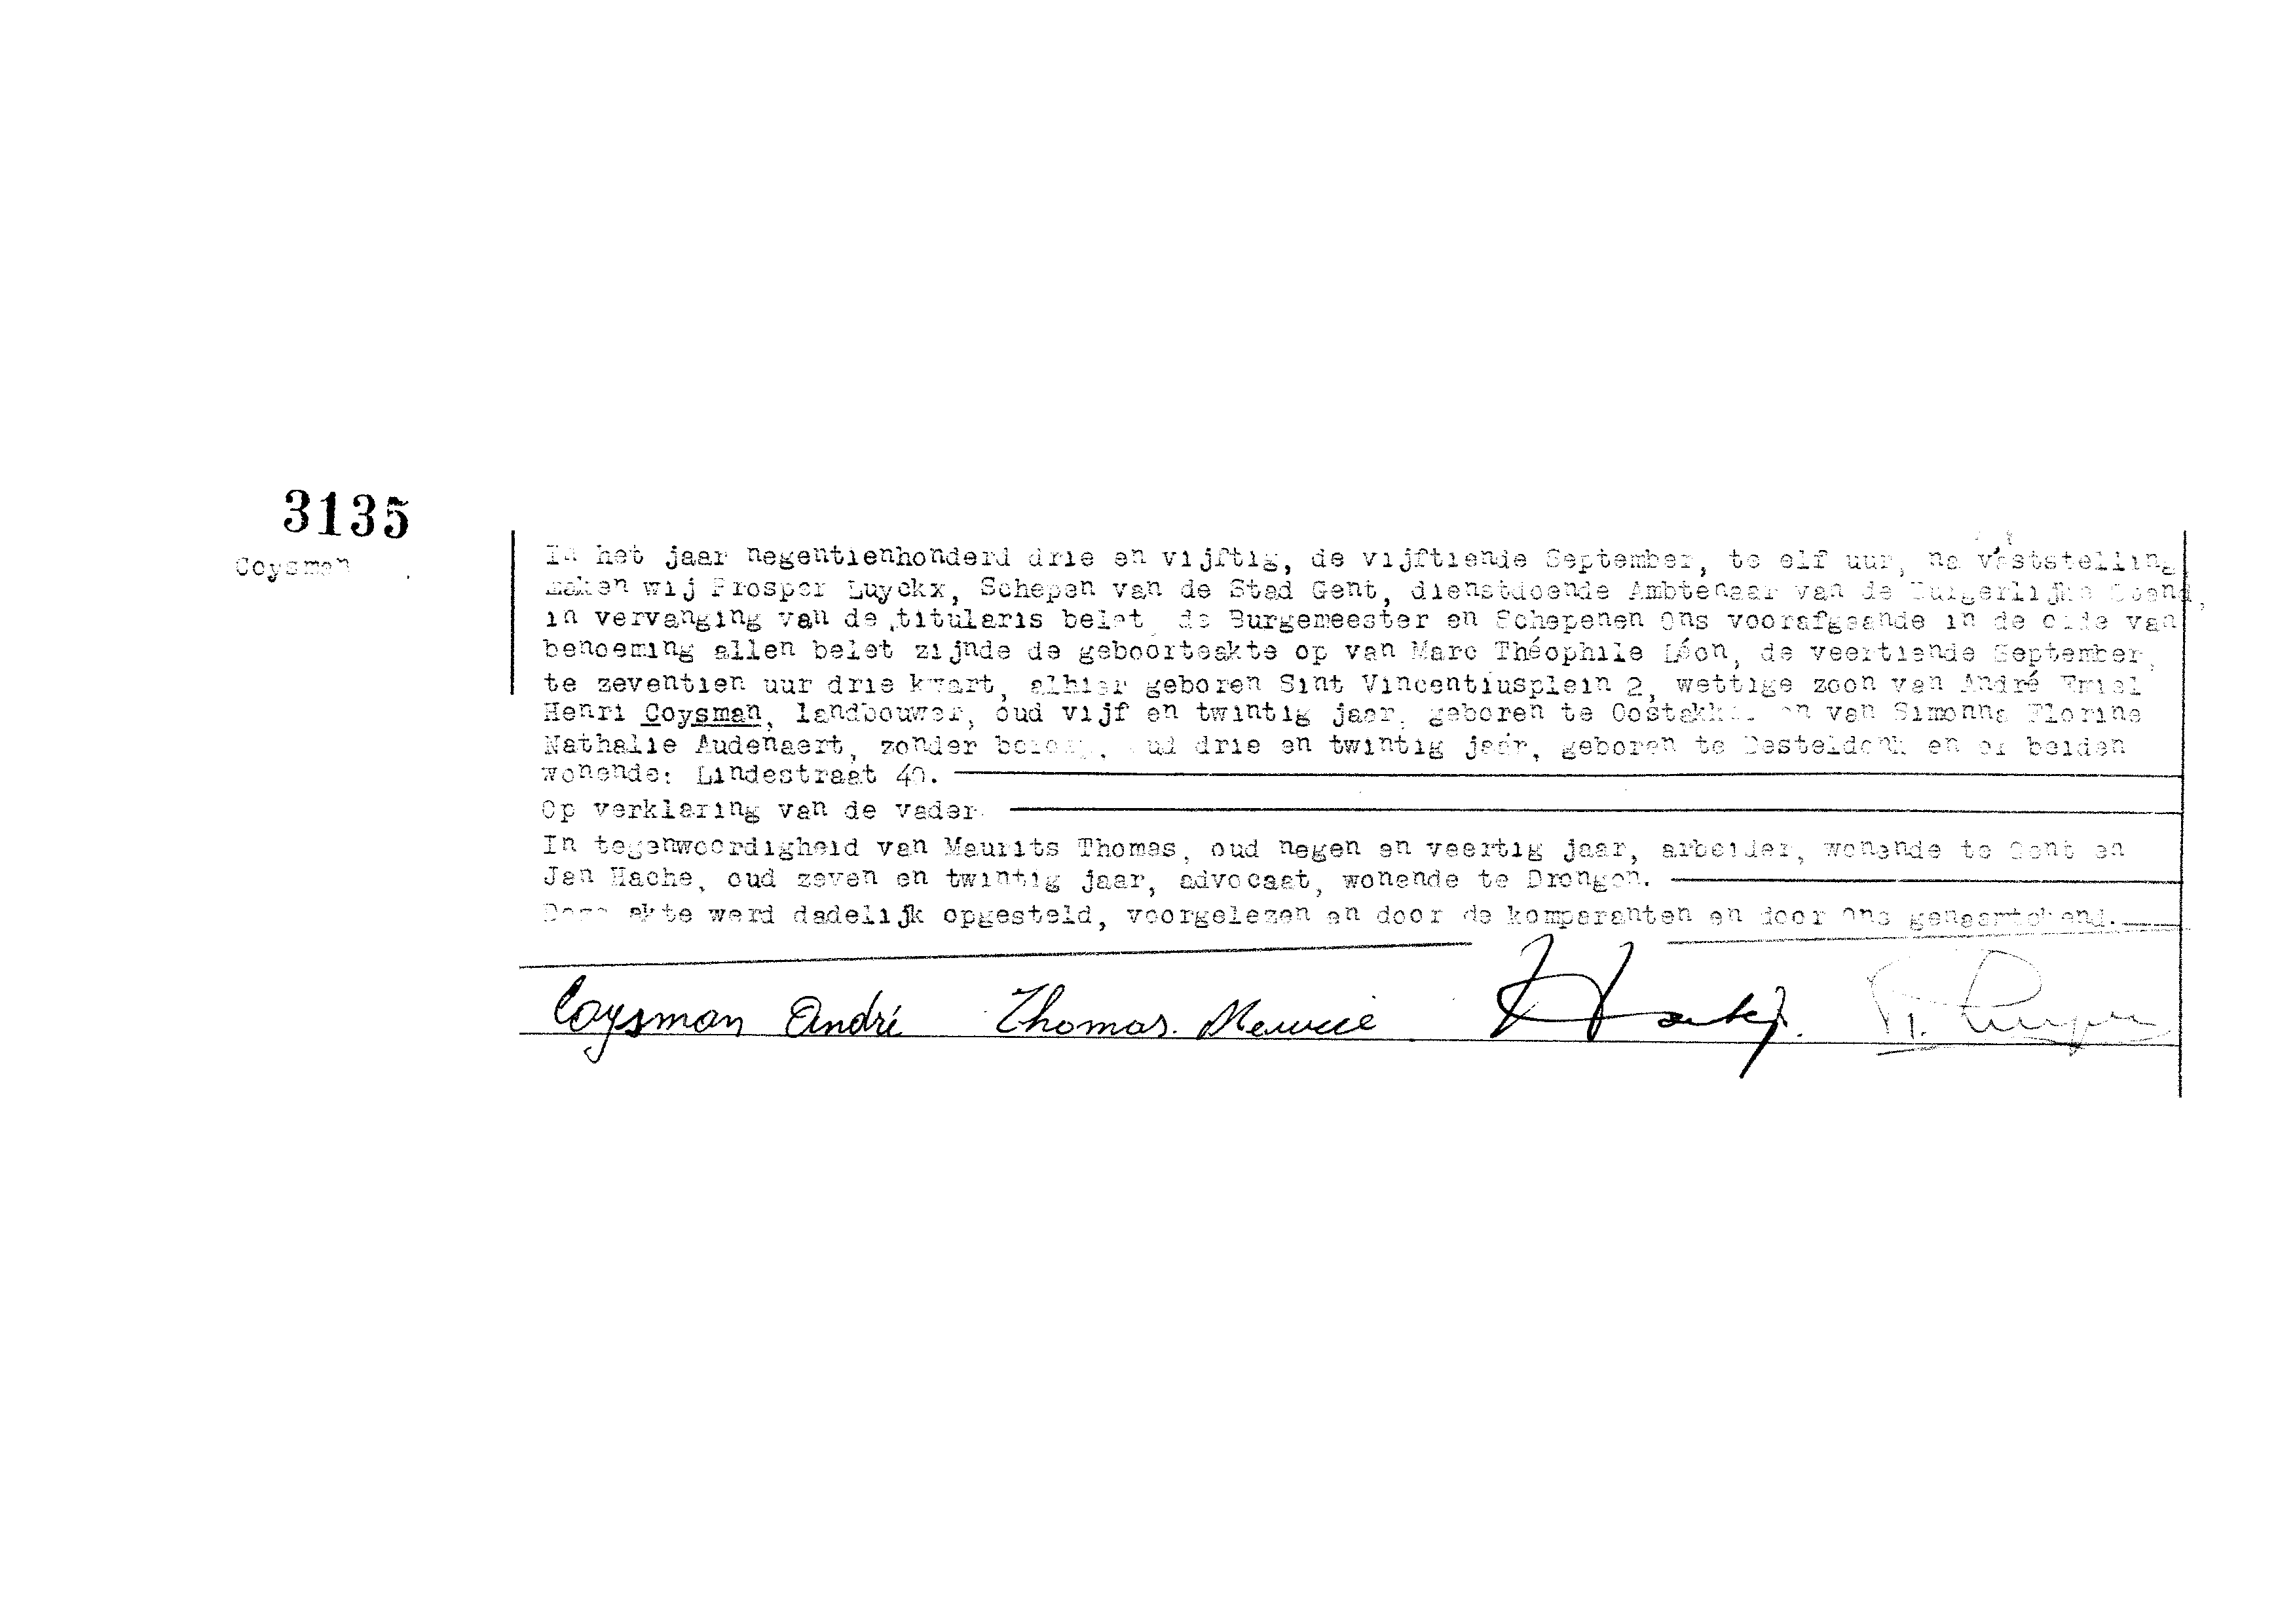 3135
Coysman
In het jaar negentienhonderd drie en vijftig, de vijftiende September, te elf uur, na vaststelling
maken wij Prosper Luyckx, Schepen van de Stad Gent, dienstdoende Ambtenaar van de Burgerlijke Stand,
in vervanging van de titularis belet, de Burgemeester en Schepenen ons voorafgaande in de orde van
benoeming allen belet zijnde de geboorteakte op van Marc Théophile Léon, de veertiende September,
te zeventien uur drie kwart, alhier geboren Sint Vincentiusplein 2, wettige zoon van André Emiel
Henri Coysman, landbouwer, oud vijf en twintig jaar, geboren te Oostakker en van Simonna Florine
Nathalie Audenaert, zonder beroep, oud drie en twintig jaar, geboren te Desteldonk en er beiden
wonende: Lindestraat 40.
Op verklaring van de vader.
In tegenwoordigheid van Maurits Thomas, oud negen en veertig jaar, arbeider, wonende te Gent en
Jan Hache, oud zeven en twintig jaar, advocaat, wonende te Drongen.
Deze akte werd dadelijk opgesteld, voorgelezen en door de komparanten en door ons genaamtekend.
Coysman André Thomas.